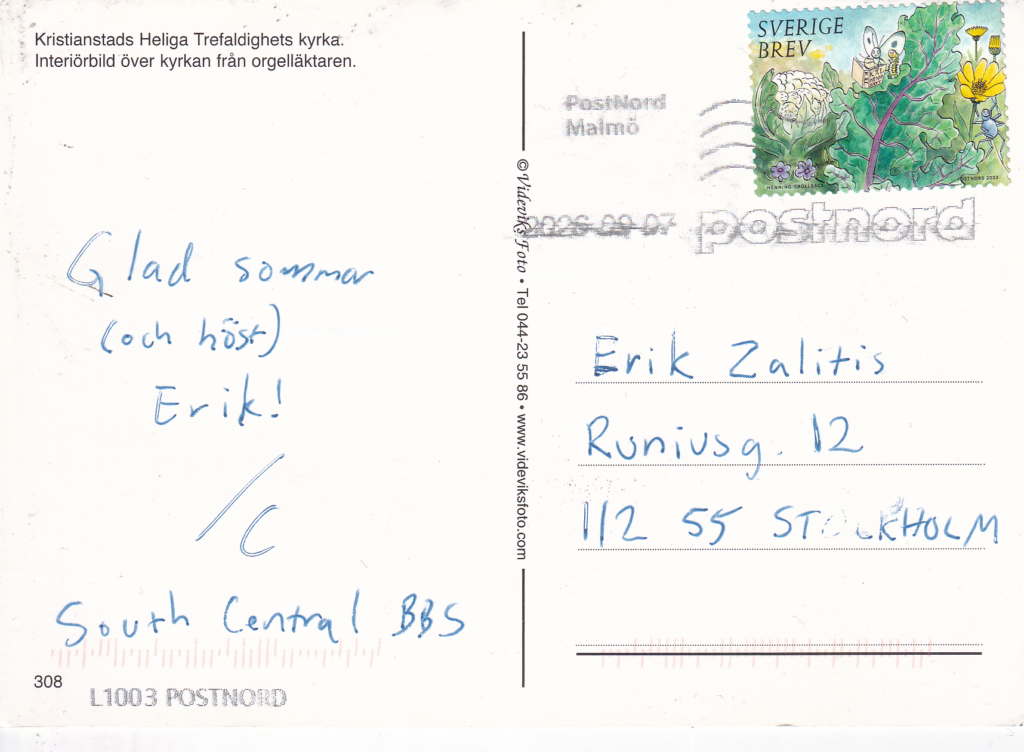 Kristianstads Heliga Trefaldighets kyrka.
Interiörbild över kyrkan från orgelläktaren.
Glad sommar
(och höst)
Erik!
/C
South Central BBS
308
L1003 POSTNORD
©Videviks Foto • Tel 044-23 55 86 • www.videviksfoto.com
SVERIGE
BREV
POSTNORD 2023
PostNord
Malmö
postnord
Erik Zalitis
Runiusg. 12
112 55 STOCKHOLM